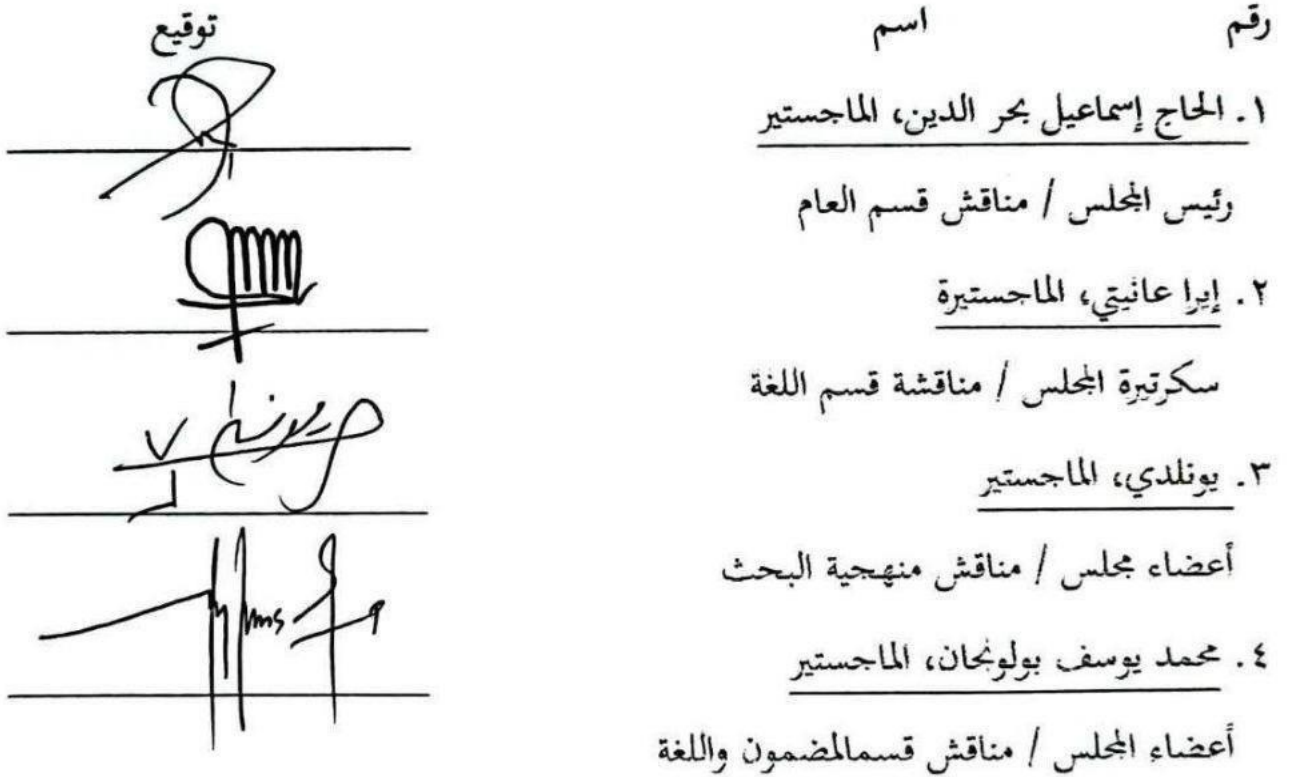 رقم اسم توقيع
١. الحاج إسماعيل بحر الدين، الماجستير
رئيس المجلس / مناقش قسم العام
٢. إيرا عانيتي، الماجستيرة
سكرتيرة المجلس / مناقشة قسم اللغة
٣. يونلدي، الماجستير
أعضاء مجلس / مناقش منهجية البحث
٤. محمد يوسف بولونجان، الماجستير
أعضاء المجلس / مناقش قسمالمضمون واللغة